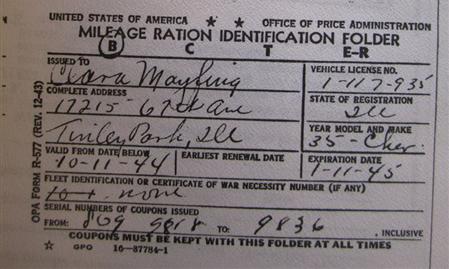 UNITED STATES OF AMERICA ★ ★ OFFICE OF PRICE ADMINISTRATION
MILEAGE RATION IDENTIFICATION FOLDER
B C T E-R
ISSUED TO
Clara
VEHICLE LICENSE NO.
1-117-935
COMPLETE ADDRESS
17215-67th Ave
STATE OF REGISTRATION
Ill
Tinley Park, Ill
YEAR MODEL AND MAKE
35-Chev
VALID FROM DATE BELOW
10-11-44
EARLIEST RENEWAL DATE
EXPIRATION DATE
1-11-45
FLEET IDENTIFICATION OR CERTIFICATE OF WAR NECESSITY NUMBER (IF ANY)
none
SERIAL NUMBERS OF COUPONS ISSUED
FROM: TO: 9836, INCLUSIVE
☆ COUPONS MUST BE KEPT WITH THIS FOLDER AT ALL TIMES
GPO 16-37784-1
OPA FORM R-577 (REV. 12-43)